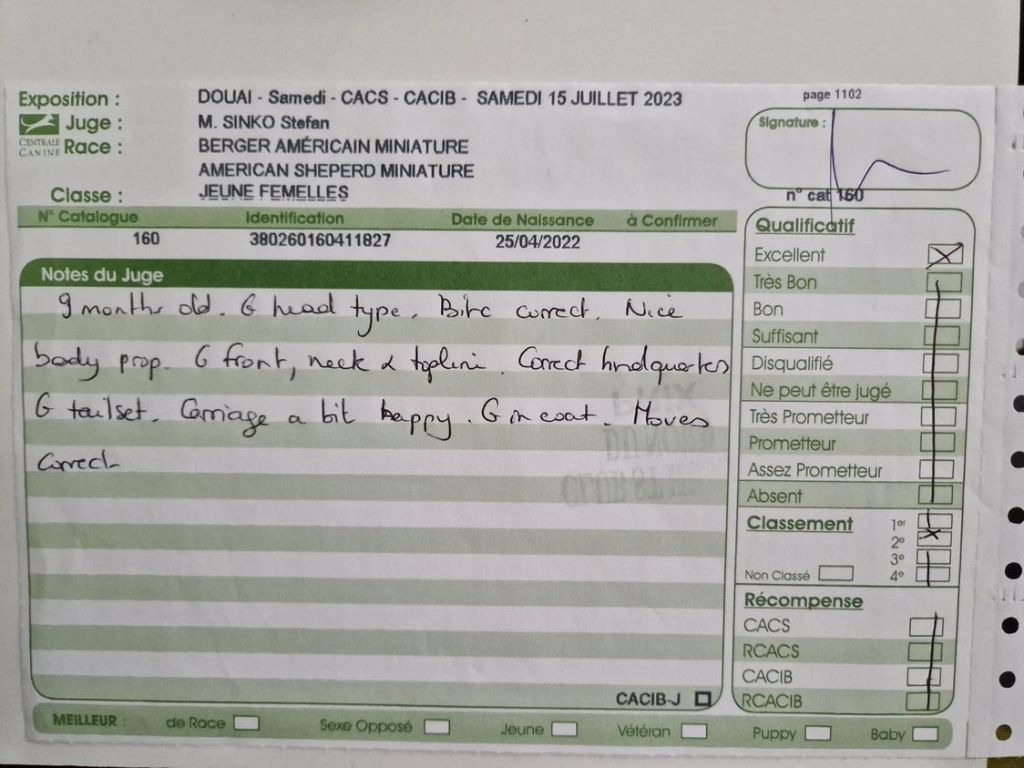 Exposition : DOUAI - Samedi - CACS - CACIB - SAMEDI 15 JUILLET 2023
page 1102
Juge : M. SINKO Stefan
Signature :
CENTRALE CANINE
Race : BERGER AMÉRICAIN MINIATURE
AMERICAN SHEPERD MINIATURE
Classe : JEUNE FEMELLES
n° cat 160
N° Catalogue Identification Date de Naissance à Confirmer
160 380260160411827 25/04/2022
Notes du Juge
9 months old. G head type. Bite correct. Nice
body prop. G front, neck & topline. Correct hindquarters
G tailset. Carriage a bit happy. G in coat. Moves
correct
CACIB-J
Qualificatif
Excellent
Très Bon
Bon
Suffisant
Disqualifié
Ne peut être jugé
Très Prometteur
Prometteur
Assez Prometteur
Absent
Classement 1er
2e
3e
Non Classé 4e
Récompense
CACS
RCACS
CACIB
RCACIB
MEILLEUR : de Race Sexe Opposé Jeune Vétéran Puppy Baby